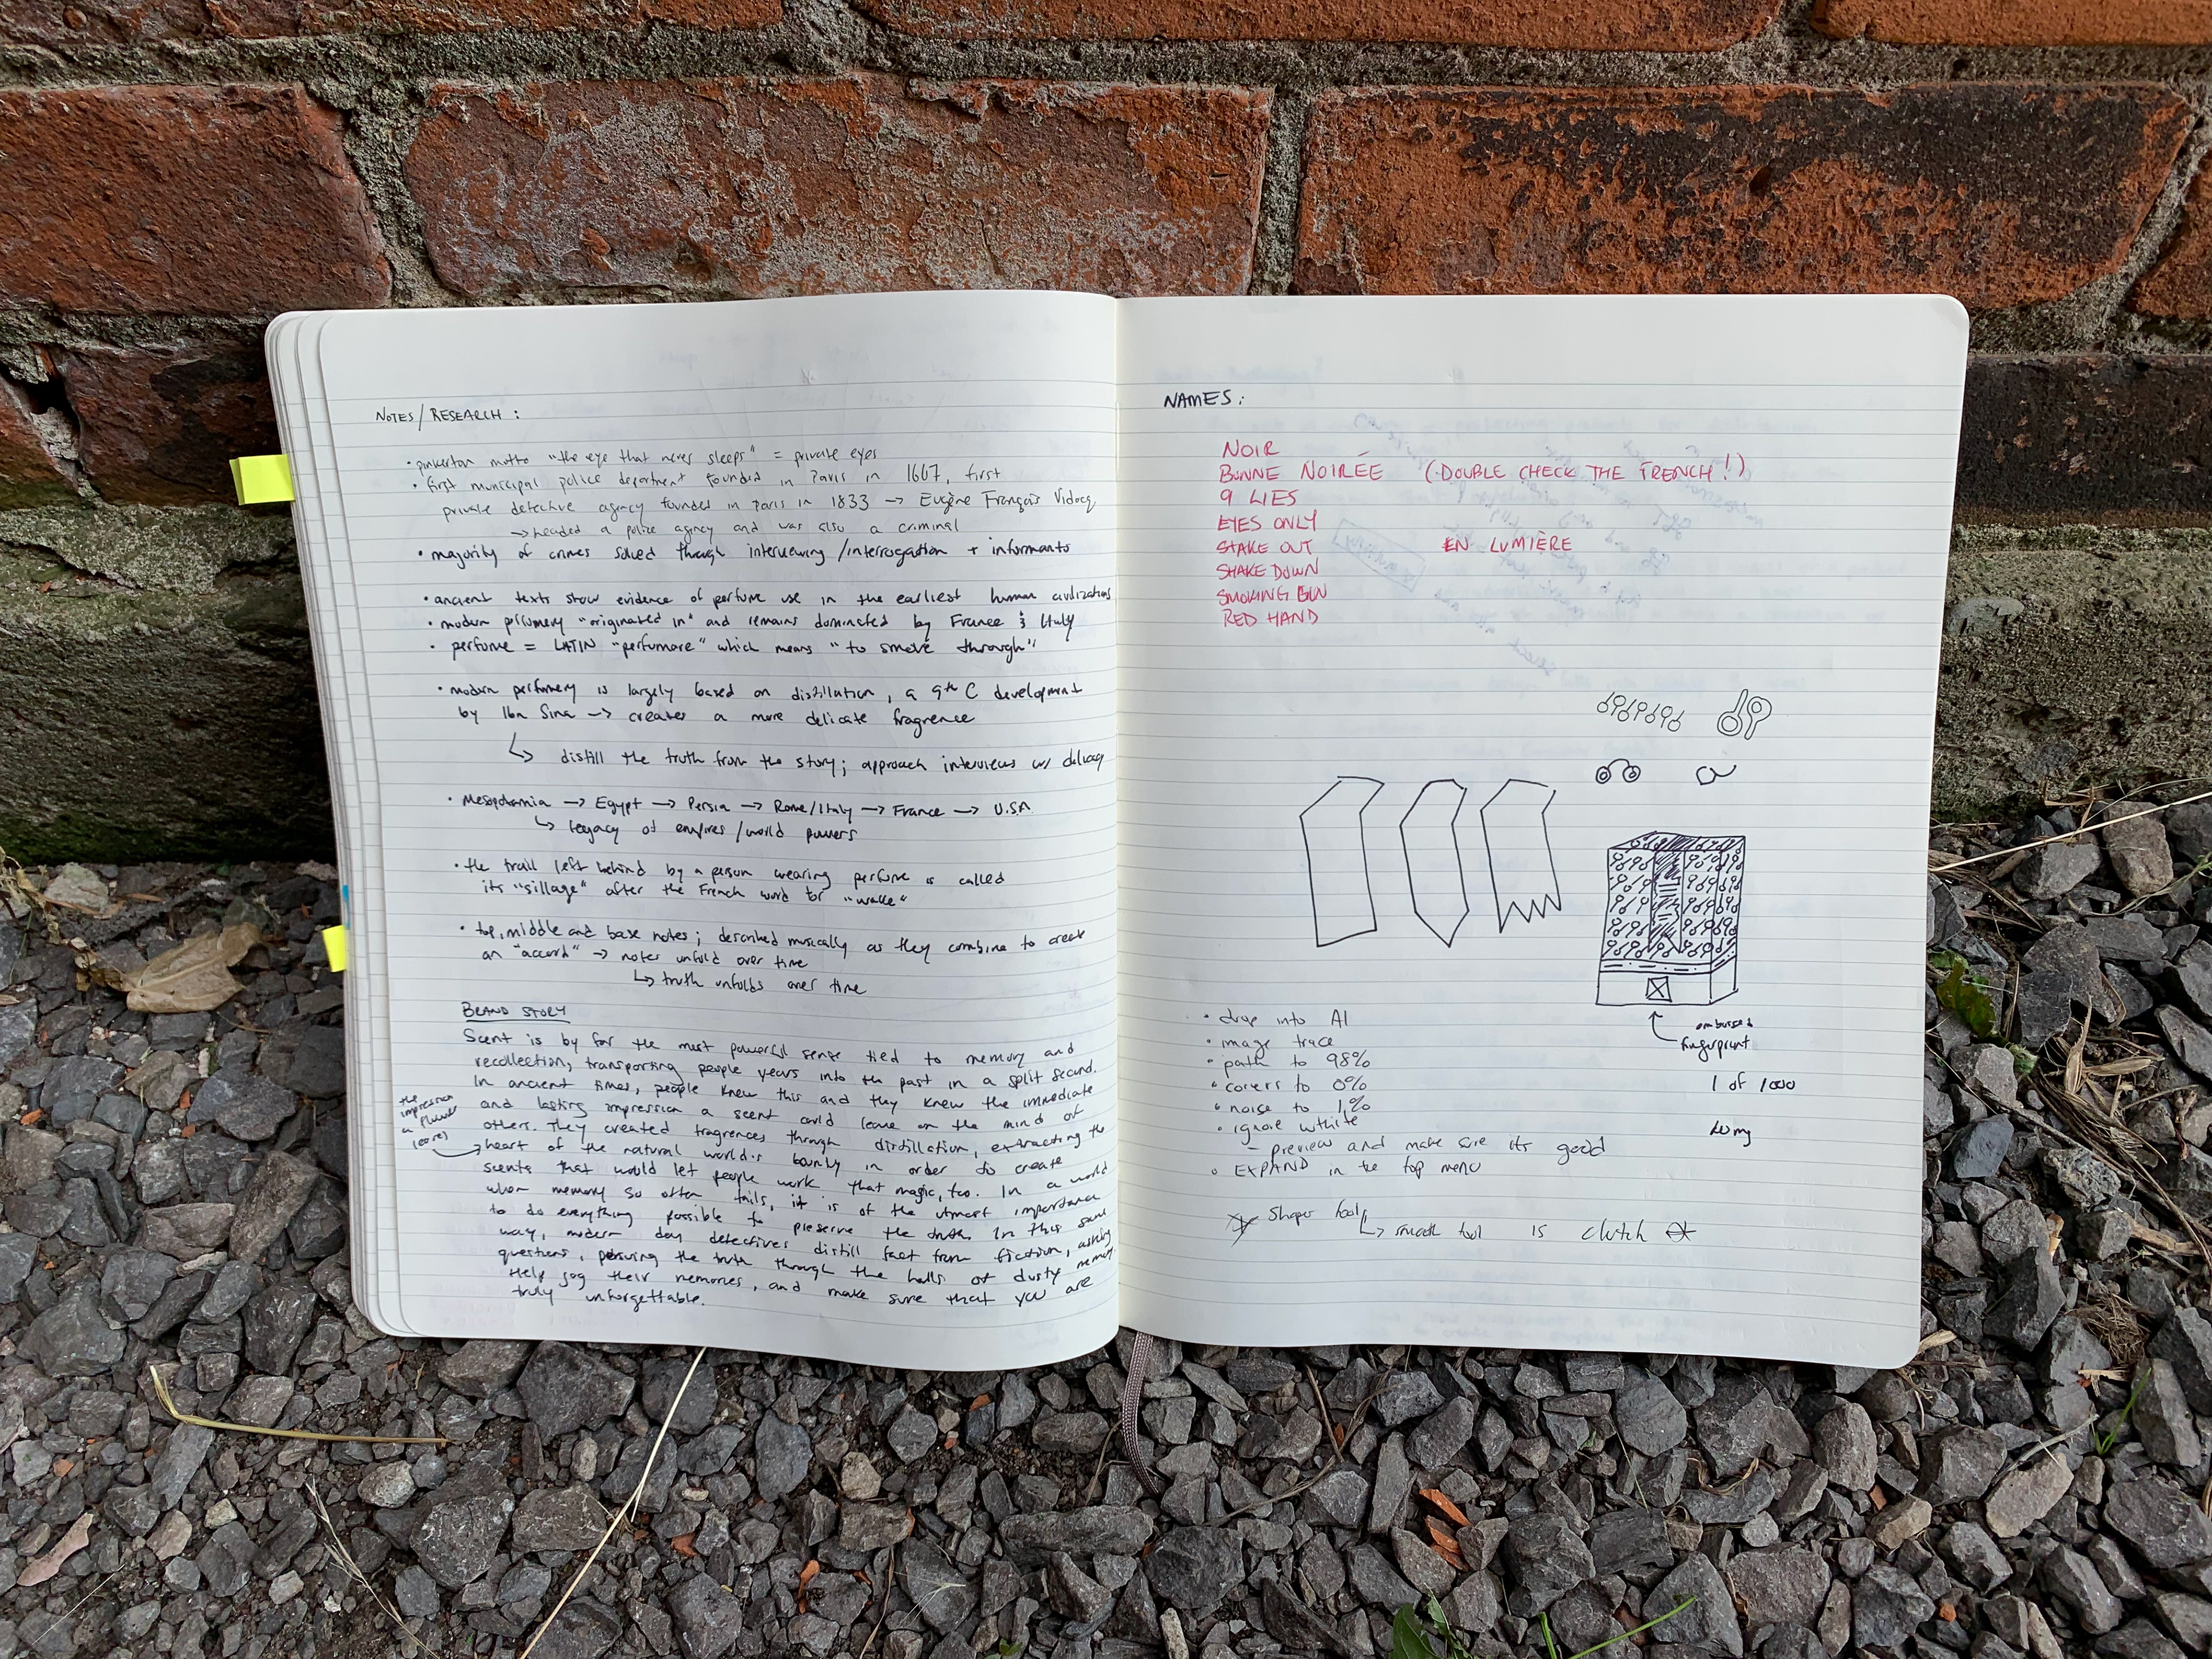 NOTES/RESEARCH:
• pinkerton motto "the eye that never sleeps" = private eyes
• first municipal police department founded in Paris in 1667, first
private detective agency founded in Paris in 1833 → Eugène François Vidocq
→ headed a police agency and was also a criminal
• majority of crimes solved through interviewing/interrogation + informants
• ancient texts show evidence of perfume use in the earliest human civilizations
• modern perfumery "originated in" and remains dominated by France & Italy
• perfume = LATIN "perfumare" which means "to smoke through"
• modern perfumery is largely based on distillation, a 9th C development
by Ibn Sina → creates a more delicate fragrence
↳ distill the truth from the story; approach interviews w/ delicacy
• Mesopotamia → Egypt → Persia → Rome/Italy → France → U.S.A.
↳ legacy of empires/world powers
• the trail left behind by a person wearing perfume is called
its "sillage" after the French word for "wake"
• top, middle and base notes; described musically as they combine to create
an "accord" → notes unfold over time
↳ truth unfolds over time
BRAND STORY
Scent is by far the most powerful sense tied to memory and
recollection, transporting people years into the past in a split second.
In ancient times, people knew this and they knew the immediate
and lasting impression a scent could leave on the mind of
others. They created fragrences through distillation, extracting the
the
impression
a flower
leaves
heart of the natural world's bounty in order to create
scents that would let people work that magic, too. In a world
when memory so often fails, it is of the utmost importance
to do everything possible to preserve the truth. In this same
way, modern day detectives distill fact from fiction, asking
questions, pursuing the truth through the halls of dusty memory.
Help jog their memories, and make sure that you are
truly unforgettable.
NAMES:
NOIR
BONNE NOIRÉE (DOUBLE CHECK THE FRENCH!)
9 LIES
EYES ONLY
STAKE OUT EN LUMIÈRE
SHAKE DOWN
SMOKING GUN
RED HAND
embossed
fingerprint
1 of 1000
• drop into AI
• image trace
• path to 98%
• corers to 0%
• noise to 1%
• ignore wthite
– preview and make sure its good
• EXPAND in the top menu
Shaper tool
↳ smooth tool is clutch